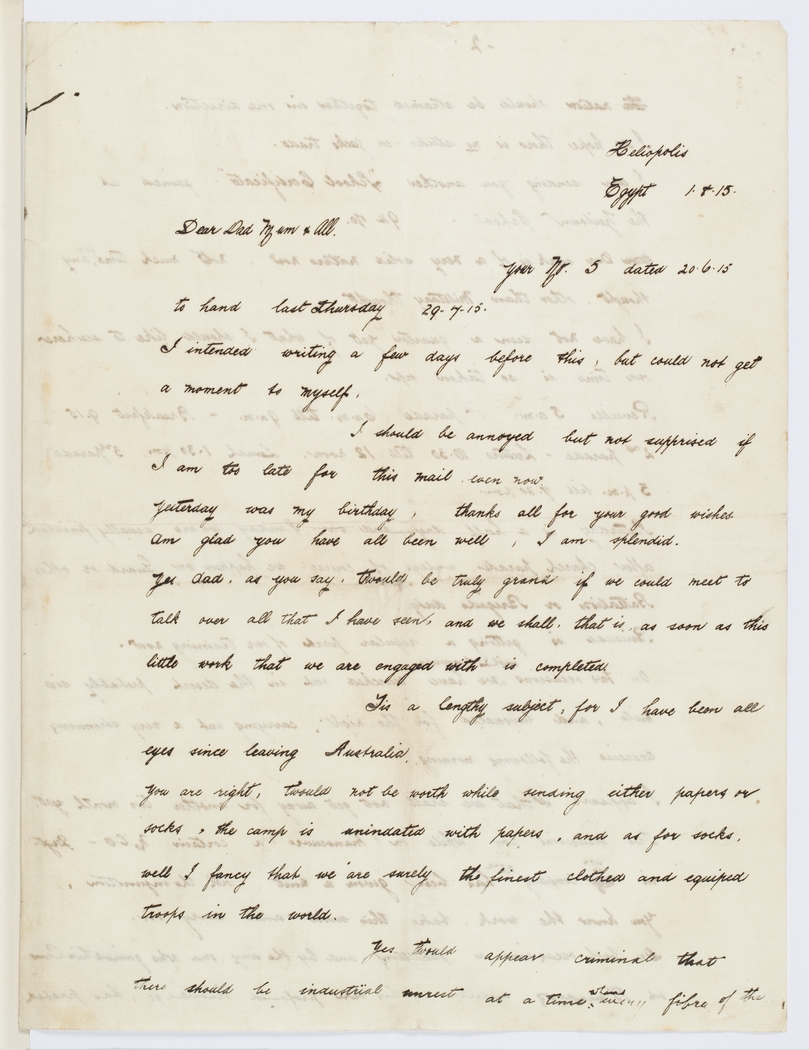 Heliopolis
Egypt 1.8.15.
Dear Dad Mum & All.
Your No. 5 dated 20.6.15
to hand last Thursday 29.7.15.
I intended writing a few days before this, but could not get
a moment to myself.
I should be annoyed but not supprised if
I am too late for this mail even now.
Yesterday was my birthday, thanks all for your good wishes
Am glad you have all been well, I am splendid.
Yes Dad. as you say. twould be truly grand if we could meet to
talk over all that I have seen, and we shall. that is. as soon as this
little work that we are engaged with is completed.
Tis a lengthy subject, for I have been all
eyes since leaving Australia.
You are right, twould not be worth while sending either papers or
socks, the camp is unindated with papers, and as for socks.
well I fancy that we are surely the finest clothed and equiped
troops in the world.
Yes twould appear criminal that
there should be industrial unrest at a time when every fibre of the